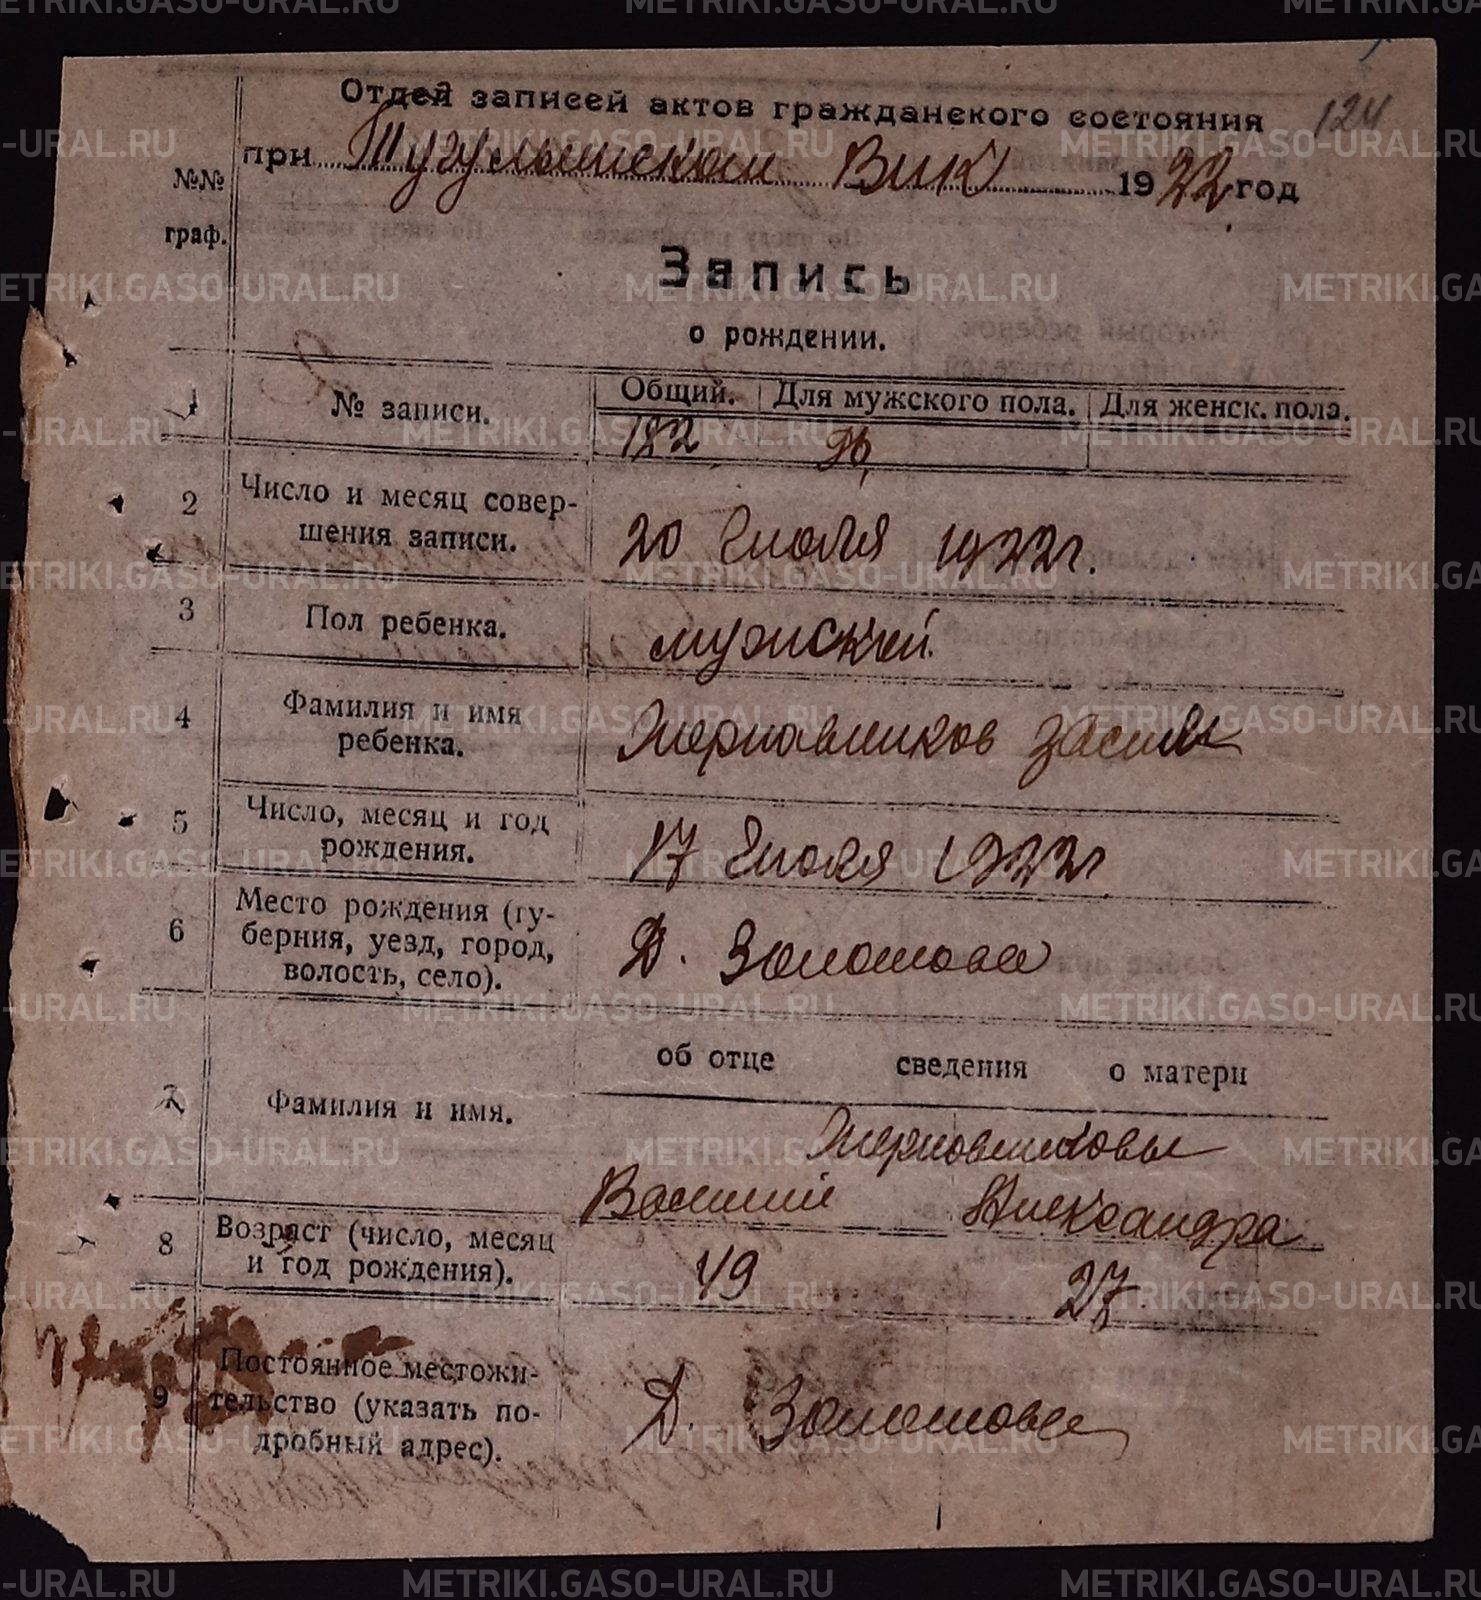 124
Отдел записей актов гражданского состояния
при Тугулымском ВИК 1922 год
№№ граф.
Запись
о рождении.
1 № записи. Общий. Для мужского пола. Для женск. пола.
182
2 Число и месяц совершения записи. 20 Июля 1922 г.
3 Пол ребенка. мужской
4 Фамилия и имя ребенка. Жерновников
5 Число, месяц и год рождения. 17 Июля 1922 г
6 Место рождения (губерния, уезд, город, волость, село). Д. Золотова
об отце сведения о матери
7 Фамилия и имя. Жерновниковы
Василий Александра
8 Возраст (число, месяц и год рождения). 49 27
9 Постоянное местожительство (указать подробный адрес). Д. Золотова
METRIKI.GASO-URAL.RU